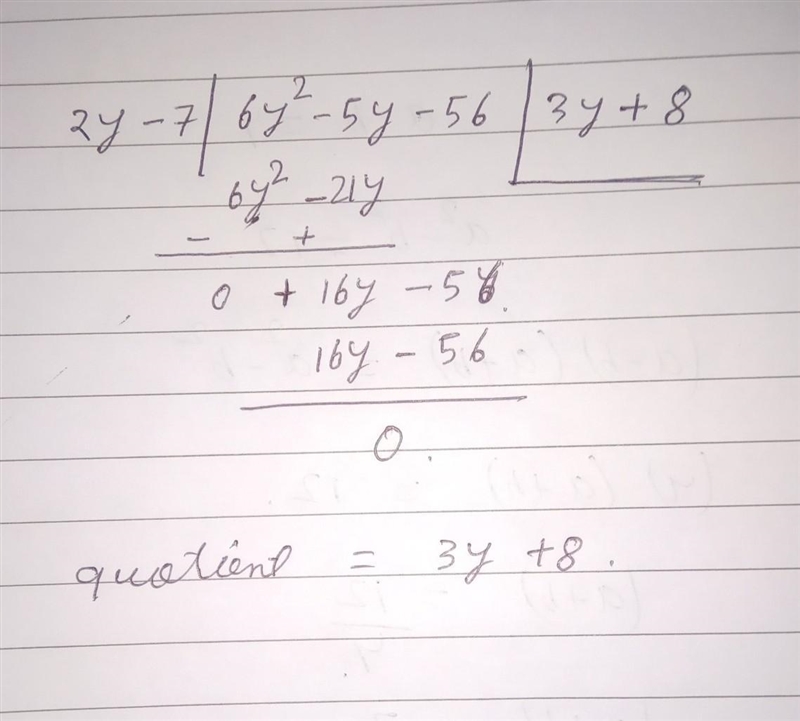 2y - 7 | 6y² - 5y - 56 | 3y + 8
6y² - 21y
- +
0 + 16y - 56.
16y - 56
0.
quotient = 3y + 8.